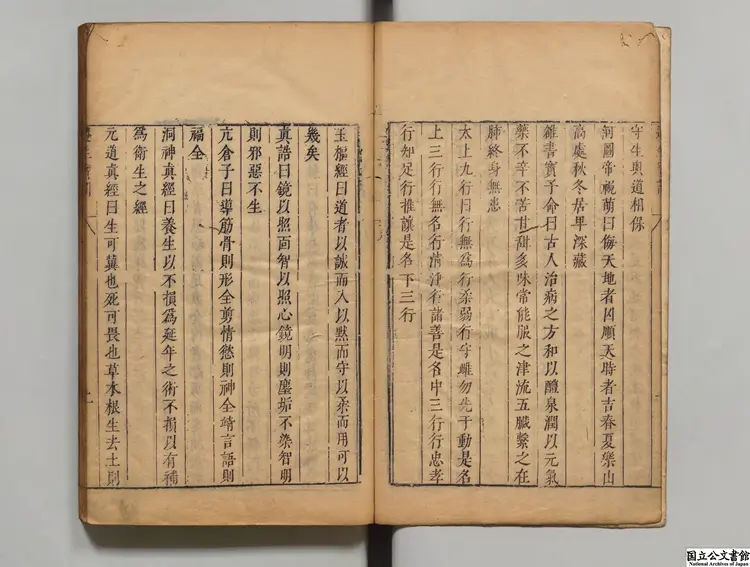 守生與道相保
河圖帝視萌曰侮天地者凶順天時者吉春夏樂山
高處秋冬居卑深藏
雒書寶予命曰古人治病之方和以醴泉潤以元氣
藥不辛不苦甘甜多味常能服之津流五臟繫之在
肺終身無患
太上九行曰行無爲行柔弱行守雌勿先于動是名
上三行行無名行清淨行諸善是名中三行行忠孝
行知足行推讓是名下三行
玉樞經曰道者以誠而入以默而守以柔而用可以
幾矣
真誥曰鏡以照面智以照心鏡明則塵垢不染智明
則邪惡不生
亢倉子曰導筋骨則形全剪情慾則神全靖言語則
福全
洞神真經曰養生以不損爲延年之術不損以有補
爲衛生之經
元道真經曰生可冀也死可畏也草木根生去土則
国立公文書館
National Archives of Japan